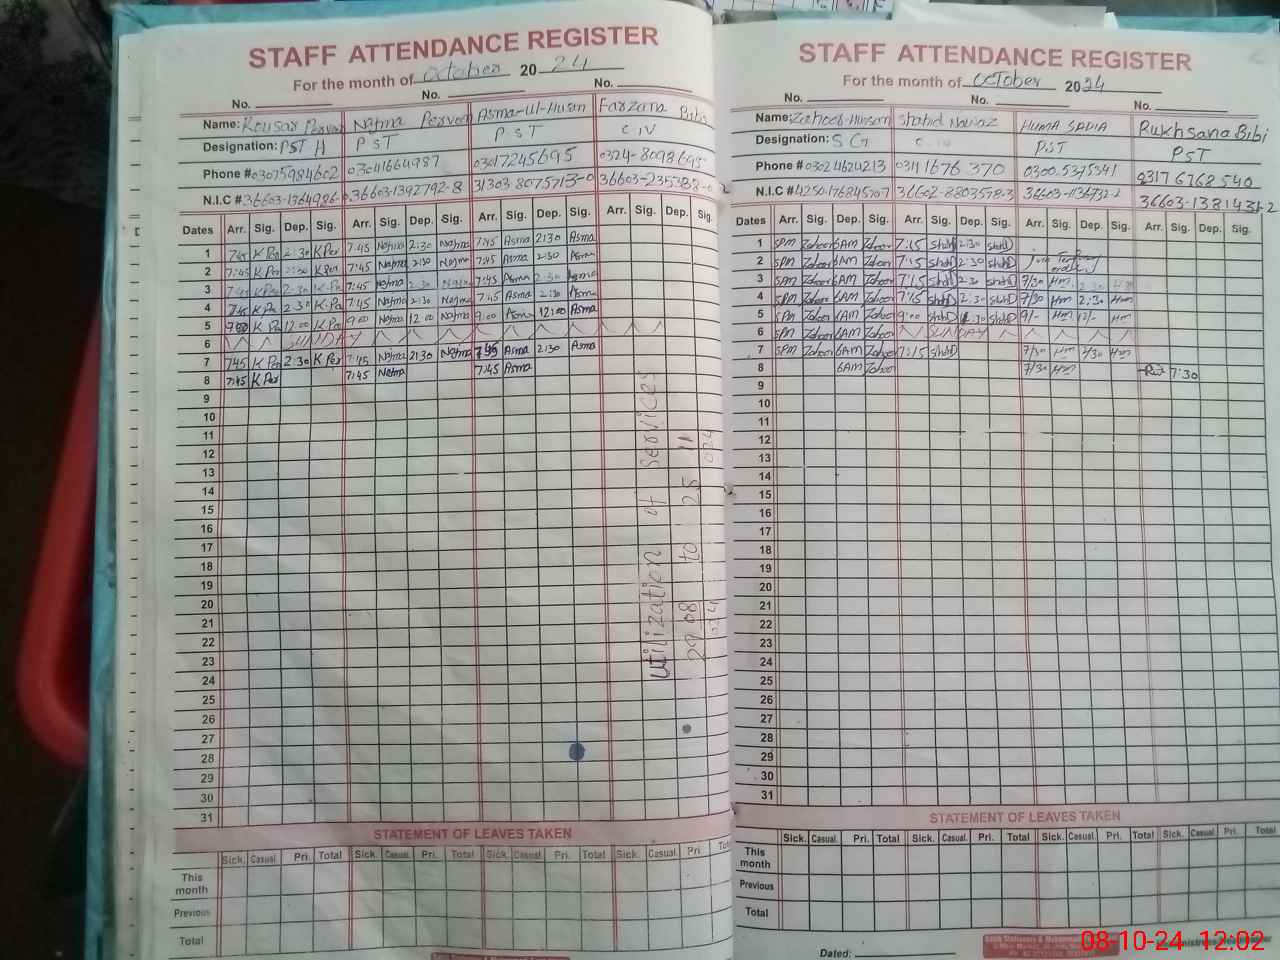 STAFF ATTENDANCE REGISTER
For the month of October 2024
No. No. No.
Name: Kousar Perven Najma Perveen Asma-ul-Husan Farzana Bibi
Designation: PST H PST PST CIV
Phone # 03075984602 03041664987 03017245695 0324-8098695
N.I.C # 36603-1364986-0 36603-1392792-8 31303-8075713-0
Dates Arr. Sig. Dep. Sig. Arr. Sig. Dep. Sig. Arr. Sig. Dep. Sig. Arr. Sig. Dep. Sig.
1 7:45 K Per 2:30 K Per 7:45 Najma 2:30 Najma 7:45 Asma 2:30 Asma
2 7:45 K Per 2:30 K Per 7:45 Najma 2:30 Najma 7:45 Asma 2:30 Asma
3 7:45 K Per 2:30 K Per 7:45 Najma 2:30 Najma 7:45 Asma 2:30 Asma
4 7:45 K Per 2:30 K Per 7:45 Najma 2:30 Najma 7:45 Asma 2:30 Asma
5 K Per 12:00 K Per 9:00 Najma 12:00 Najma 9:00 Asma 12:00 Asma
6 SUNDAY
7 7:45 K Per 2:30 K Per 7:45 Najma 2:30 Najma 7:45 Asma 2:30 Asma
8 7:45 K Per 7:45 Najma 7:45 Asma
9
10
11
12
13
14
15
16
17
18
19
20
21
22
23
24
25
26
27
28
29
30
31
utilization of services
29 08 2024 to 25 11 2024
STATEMENT OF LEAVES TAKEN
Sick. Casual. Pri. Total Sick. Casual. Pri. Total Sick. Casual. Pri. Total Sick. Casual. Pri. Total
This month
Previous
Total
STAFF ATTENDANCE REGISTER
For the month of October 2024
No. No. No.
Name: Zaheer Hussan Shahid Nawaz HUMA SADIA Rukhsana Bibi
Designation: SG C.IV PST PST
Phone # 03024624213 0311 1676 370 0300-5375341 0317 6768 540
N.I.C # 36602-8803578-3
Dates Arr. Sig. Dep. Sig. Arr. Sig. Dep. Sig. Arr. Sig. Dep. Sig. Arr. Sig. Dep. Sig.
1 5PM Zahoor 6AM Zahoor 7:15 ShahD 2:30 ShahD
2 5PM Zahoor 6AM Zahoor 7:15 ShahD 2:30 ShahD
3 5PM Zahoor 6AM Zahoor 7:15 ShahD 2:30 ShahD 7/30 Hm 2:30 Hm
4 5PM Zahoor 6AM Zahoor 7:15 ShahD 2:30 ShahD 7/30 Hm 2:30 Hm
5 5PM Zahoor 6AM Zahoor 9:00 ShahD ShahD 9/- Hm 12/- Hm
6 5PM Zahoor 6AM Zahoor SUNDAY
7 5PM Zahoor 6AM Zahoor 7:15 ShahD 7/30 Hm 2/30 Hm
8 6AM Zahoor 7/30 Hm 7:30
9
10
11
12
13
14
15
16
17
18
19
20
21
22
23
24
25
26
27
28
29
30
31
STATEMENT OF LEAVES TAKEN
Sick. Casual. Pri. Total Sick. Casual. Pri. Total Sick. Casual. Pri. Total Sick. Casual. Pri. Total
This month
Previous
Total
Dated:
08-10-24 12:02